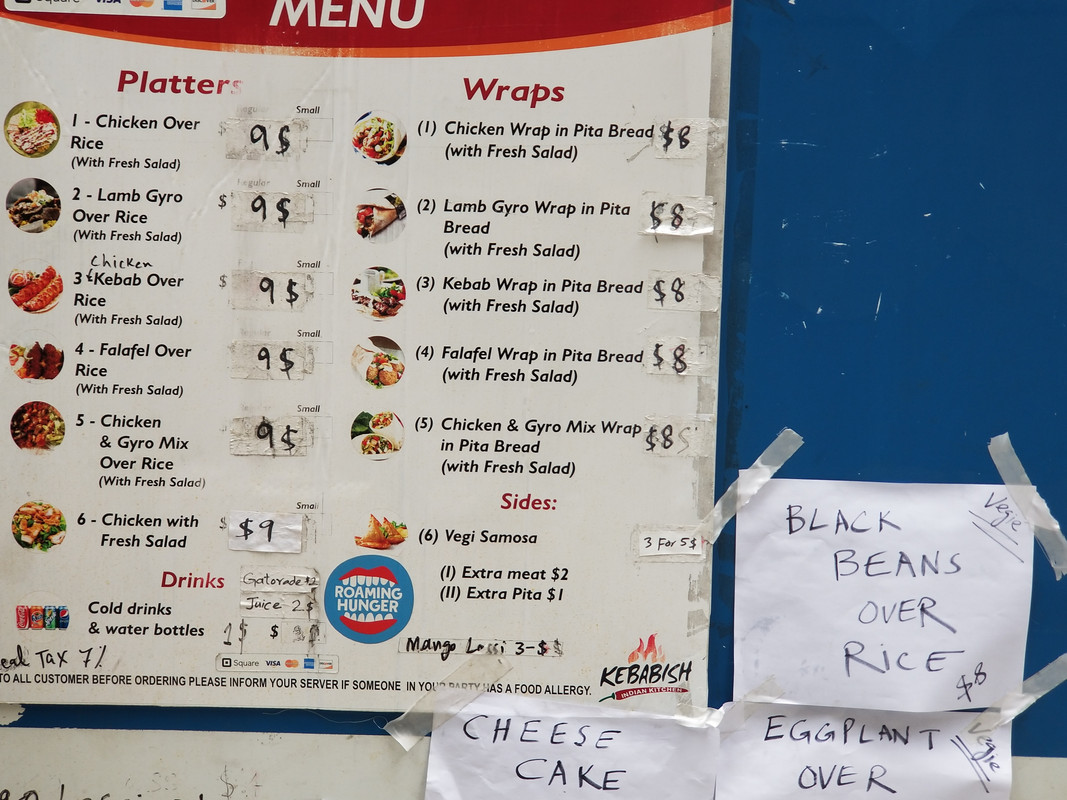 Square VISA
MENU
Platters
Small
1 - Chicken Over
Rice
(With Fresh Salad)
9$
Regular Small
2 - Lamb Gyro
Over Rice
(With Fresh Salad)
$ 9$
Chicken
Small
3 & Kebab Over
Rice
(With Fresh Salad)
$ 9$
Small
4 - Falafel Over
Rice
(With Fresh Salad)
$ 9$
Small
5 - Chicken
& Gyro Mix
Over Rice
(With Fresh Salad)
9$
Small
6 - Chicken with
Fresh Salad
$ $9
Drinks
Gatorade $2
Juice 2$
Cold drinks
& water bottles
1$ $
TAX 7%
Square VISA
Wraps
(1) Chicken Wrap in Pita Bread $8
(with Fresh Salad)
(2) Lamb Gyro Wrap in Pita
Bread
(with Fresh Salad)
$8
(3) Kebab Wrap in Pita Bread $8
(with Fresh Salad)
(4) Falafel Wrap in Pita Bread $8
(with Fresh Salad)
(5) Chicken & Gyro Mix Wrap $8
in Pita Bread
(with Fresh Salad)
Sides:
(6) Vegi Samosa 3 For 5$
(I) Extra meat $2
(II) Extra Pita $1
ROAMING
HUNGER
Mango Lassi 3-$
KEBABISH
INDIAN KITCHEN
TO ALL CUSTOMER BEFORE ORDERING PLEASE INFORM YOUR SERVER IF SOMEONE IN YOUR PARTY HAS A FOOD ALLERGY.
Vege
BLACK
BEANS
OVER
RICE
$8
CHEESE
CAKE
EGGPLANT
OVER
Vegie